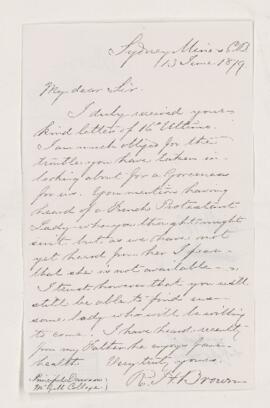 Sydney Mines C.B.
13 June 1879
My dear Sir.
I duly received your
kind letter of 16th Ultimo.
I am much obliged for the
trouble you have taken in
looking about for a Governess
for us. You mention having
heard of a French Protestant
Lady who you thought might
suit but as we have not
yet heard from her I fear
that she is not available
I trust however that you will
still be able to find us
some lady who will be willing
to come. I have heard recently
from my Father he enjoys good
health. Very truly yours.
R. H. Brown
Principal Dawson
McGill College